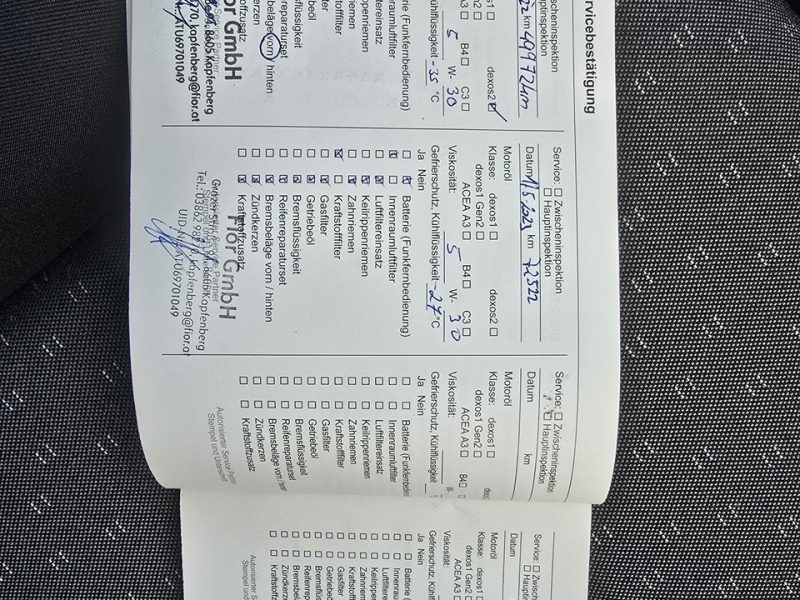 rvicebestätigung
scheninspektion
Hauptinspektion
km 49972km
dexos2
A3 B4 C3
5 W- 30
Kühlflüssigkeit -35 °C
rie (Funkfernbedienung)
enraumluftfilter
teinsatz
ippenriemen
nriemen
ftstofffilter
filter
ebeöl
sflüssigkeit
nreparaturset
sbeläge vorn / hinten
kerzen
offzusatz
Fior GmbH
8605 Kapfenberg
070, kapfenberg@fior.at
ATU69701049
Service: Zwischeninspektion
Hauptinspektion
Datum km 72522
Motoröl
Klasse: dexos1 dexos2
dexos1 Gen2
ACEA A3 B4 C3
Viskosität: 5 W- 30
Gefrierschutz, Kühlflüssigkeit -27 °C
Ja Nein
Batterie (Funkfernbedienung)
Innenraumluftfilter
Luftfiltereinsatz
Keilrippenriemen
Zahnriemen
Kraftstofffilter
Gasfilter
Getriebeöl
Bremsflüssigkeit
Reifenreparaturset
Bremsbeläge vorn / hinten
Zündkerzen
Kraftstoffzusatz
Fior GmbH
Kapfenberg
kapfenberg@fior.at
ATU69701049
Service: Zwischeninspektion
Hauptinspektion
Datum km
Motoröl
Klasse: dexos1
dexos1 Gen2
ACEA A3 B4
Viskosität:
Gefrierschutz, Kühlflüssigkeit
Ja Nein
Batterie (Funkfernbedien
Innenraumluftfilter
Luftfiltereinsatz
Keilrippenriemen
Zahnriemen
Kraftstofffilter
Gasfilter
Getriebeöl
Bremsflüssigkeit
Reifenreparaturset
Bremsbeläge vorn / hint
Zündkerzen
Kraftstoffzusatz
Autorisierter Service Partner
Stempel und Unterschrift
Service: Zwisc
Haupt
Datum
Motoröl
Klasse: dexos1
dexos1 Gen2
ACEA A3
Viskosität:
Gefrierschutz, Kühl
Ja Nein
Batterie
Innenra
Luftfiltere
Keilrippe
Zahnriem
Kraftstoff
Gasfilter
Getriebe
Bremsflü
Reifenrep
Bremsbel
Zündkerze
Kraftstoffz
Autorisierter S
Stempel und